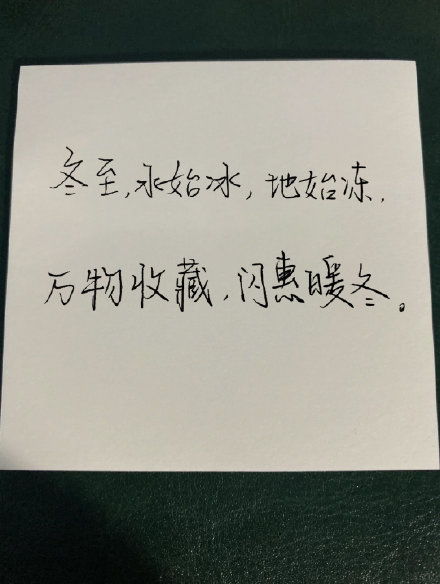 冬至,水始冰,地始冻,
万物收藏,闪惠暖冬。